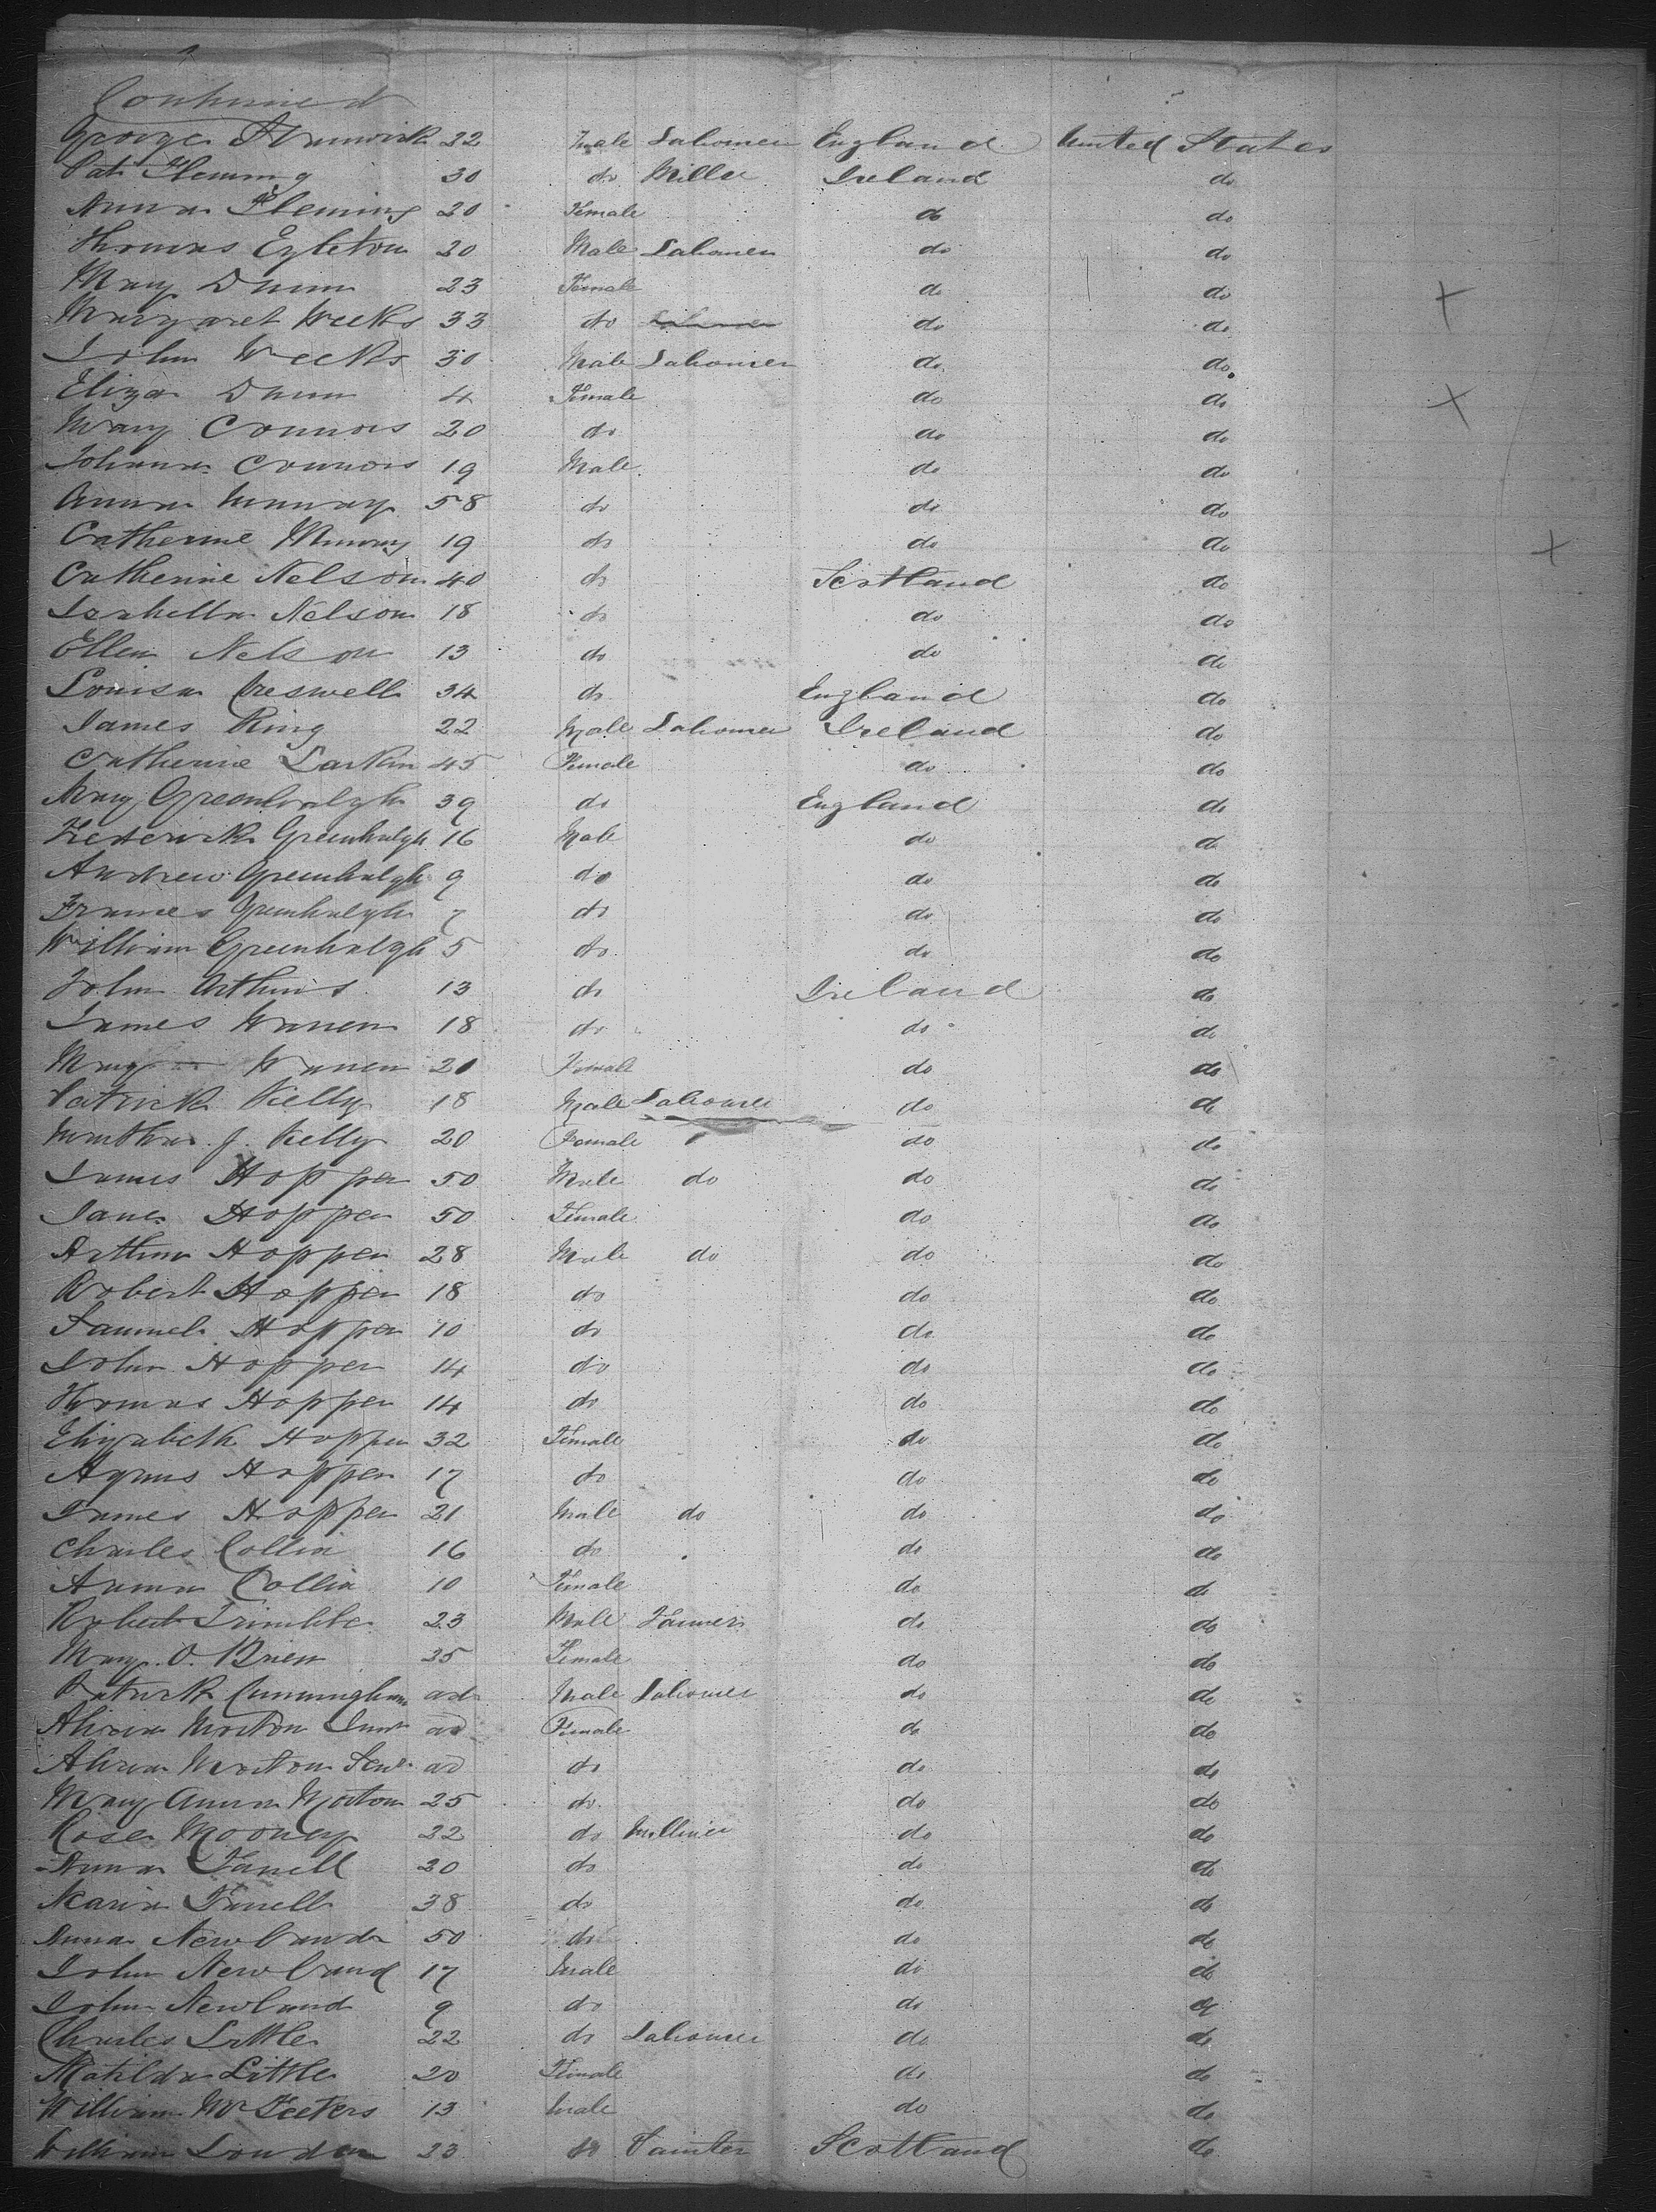 Continued
George 22 Male Labourer England United States
Pat Fleming 30 do Miller Ireland do
Anna Fleming 20 Female do do
Thomas Egleton 20 Male Labourer do do
Mary Dunn 23 Female do do +
Margaret Weeks 33 do Labourer do do
John Weeks 30 Male Labourer do do
Eliza Dunn 4 Female do do +
Mary Connors 20 do do do
Johanna Connors 19 Male do do
Anna Murray 58 do do do
Catherine Murray 19 do do do +
Catherine Nelson 40 do Scotland do
Isabella Nelson 18 do do do
Ellen Nelson 13 do do do
Louisa Creswell 34 do England do
James King 22 Male Labourer Ireland do
Catherine Larkin 45 Female do do
Mary Greenhalgh 39 do England do
Frederick Greenhalgh 16 Male do do
Andrew Greenhalgh 9 do do do
Frances Greenhalgh 7 do do do
William Greenhalgh 5 do do do
John Arthurs 13 do Ireland do
James Warren 18 do do do
Mary Warren 20 Female do do
Patrick Kelly 18 Male Labourer do do
Martha J. Kelly 20 Female do do
James Hopper 50 Male do do do
Jane Hopper 50 Female do do
Arthur Hopper 28 Male do do do
Robert Hopper 18 do do do
Samuel Hopper 10 do do do
John Hopper 14 do do do
Thomas Hopper 14 do do do
Elizabeth Hopper 32 Female do do
Agnus Hopper 17 do do do
James Hopper 21 Male do do do
Charles Collin 16 do do do
Anna Collin 10 Female do do
Robert Trimble 23 Male Farmer do do
Mary O. Brien 35 Female do do
Patrick Cunningham ad Male Labourer do do
Alicia Morton Junr ad Female do do
Alicia Morton Senr ad do do do
Mary Anna Morton 25 do do do
Rose Mooney 22 do Milliner do do
Anna Farrell 20 do do do
Maria Farrell 38 do do do
Anna Newland 50 do do do
John Newland 17 Male do do
John Newland 9 do do do
Charles Little 22 do Labourer do do
Matilda Little 20 Female do do
William McFeeters 13 Male do do
William Loudon 23 do Painter Scotland do